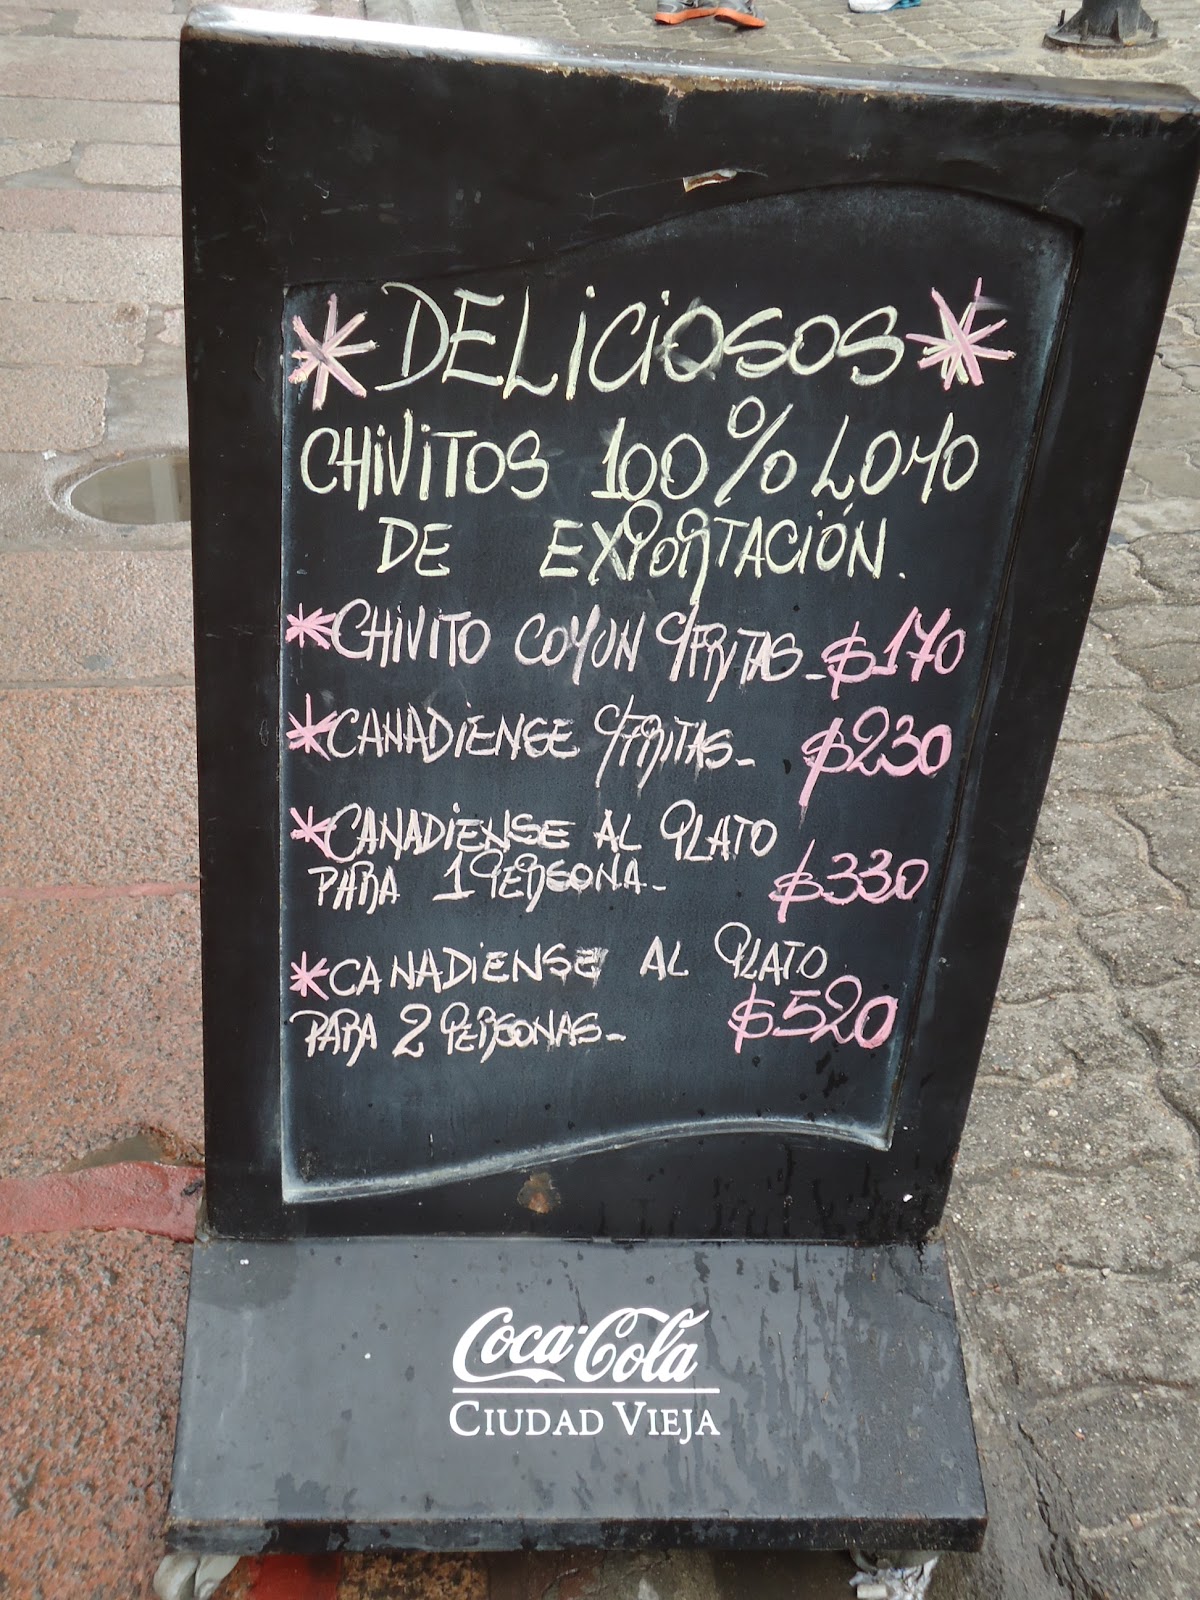 DELICIOSOS
CHIVITOS 100% LOMO
DE EXPORTACIÓN.
*CHIVITO COMUN C/FRITAS_ $170
*CANADIENSE C/FRITAS_ $230
*CANADIENSE AL PLATO
PARA 1 PERSONA_ $330
*CANADIENSE AL PLATO
PARA 2 PERSONAS_ $520
Coca-Cola
CIUDAD VIEJA